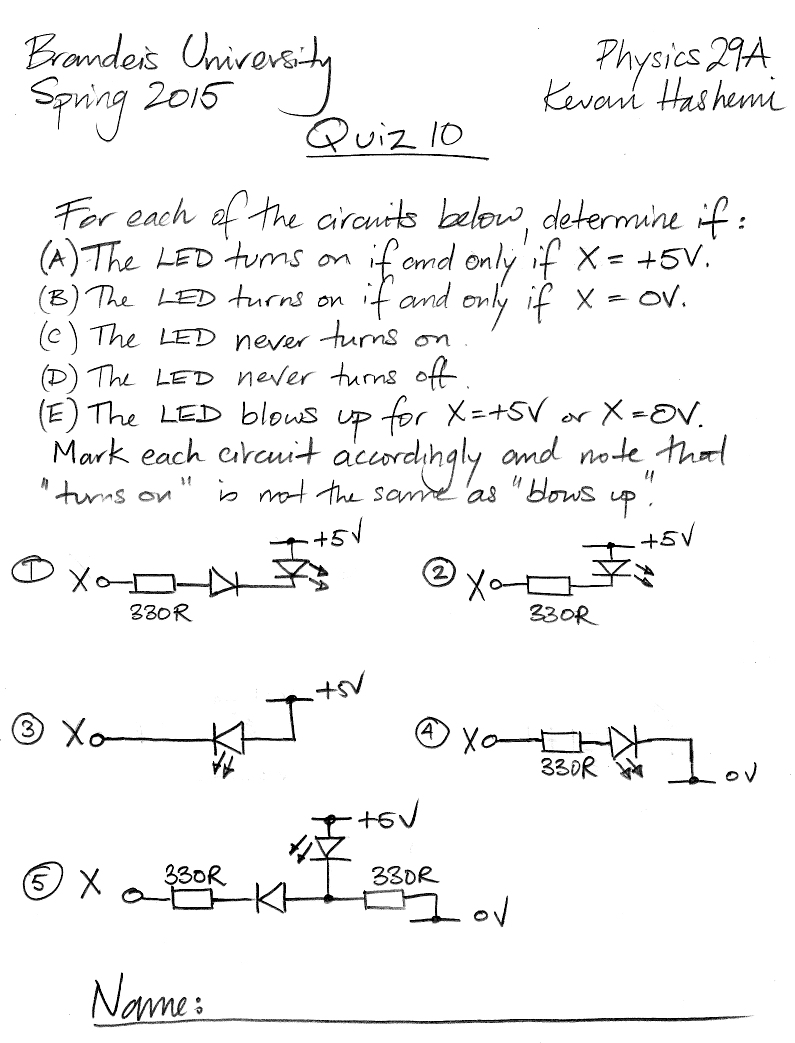 Brandeis University
Physics 29A
Spring 2015
Kevan Hashemi
Quiz 10
For each of the circuits below, determine if:
(A) The LED turns on if and only if X = +5V.
(B) The LED turns on if and only if X = 0V.
(C) The LED never turns on.
(D) The LED never turns off.
(E) The LED blows up for X=+5V or X=0V.
Mark each circuit accordingly and note that
"turns on" is not the same as "blows up".
① X 330R +5V
② X 330R +5V
③ X +5V
④ X 330R 0V
⑤ X 330R +5V 330R 0V
Name: